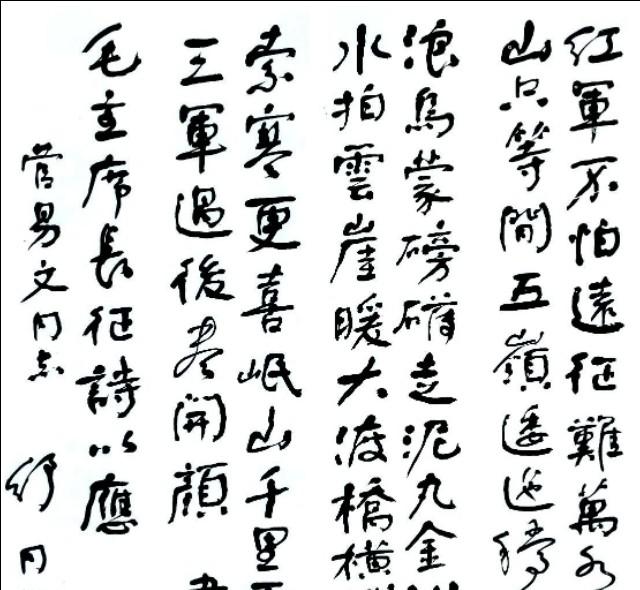 紅軍不怕遠征難萬水
山只等閒五嶺逶迤騰
浪烏蒙磅礴走泥丸金
水拍雲崖暖大渡橋橫
索寒更喜岷山千里
三軍過後盡開顏
毛主席長征詩以應
管易文同志
舒同